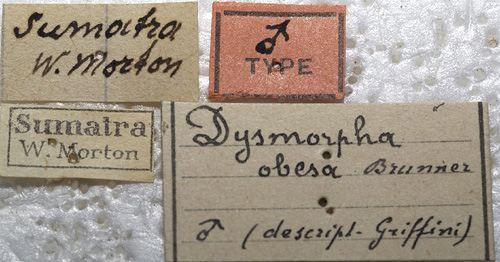 Sumatra
W. Morton
♂
TYPE
Sumatra
W. Morton
Dysmorpha
obesa Brunner
♂ (descript. Griffini)